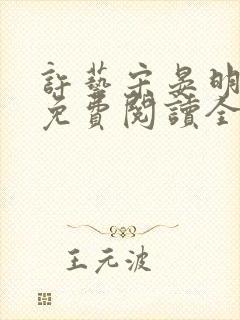 許藝宋晏明
免費閱讀全
王元波